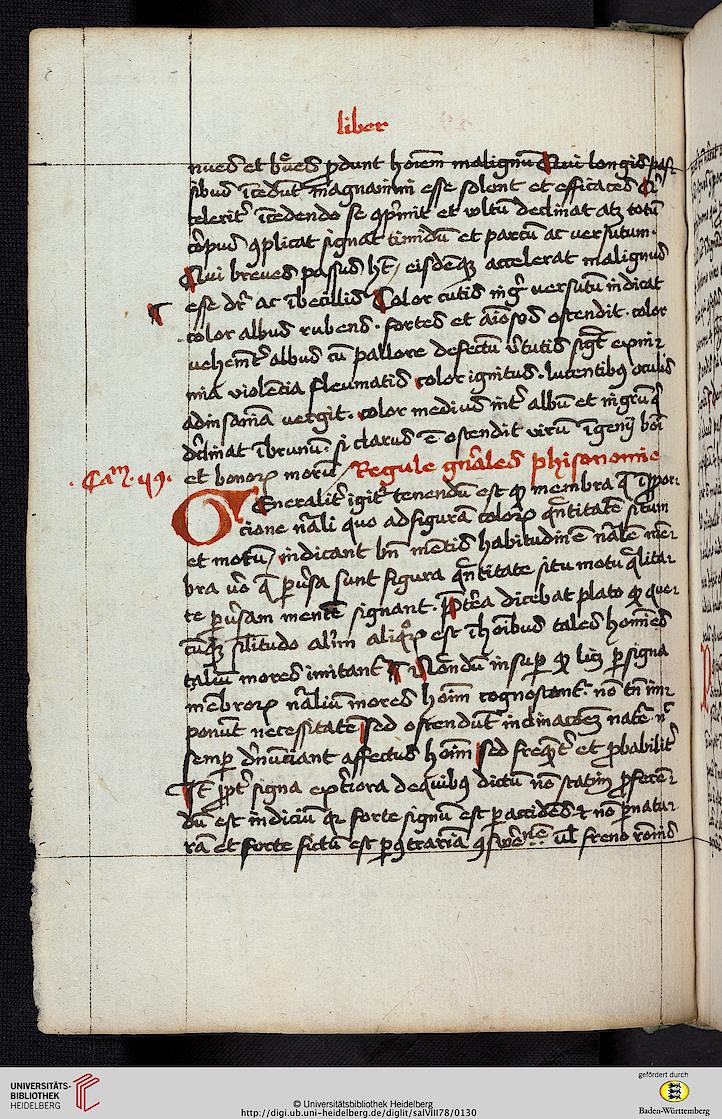 liber
nues et breues prdunt hoiem malignu Qui longis pas-
sibus icedut magnanimi esse solent et efficaces Qi
celerit icedendo se oprimit et voltu declinat atz totu
corpus oplicat signat timidu et parcu ac versutum.
Qui breues passus ht, eisdeqz accelerat malignus
esse dr ac ibecillis Color cutis nigr versutu indicat
color albus rubens. fortes et aiosos ostendit. color
vehemet albus cu pallore defectu vtutis sigt ex nimia
mia violecia fleumatis color ignitus. lucentibz oculis
ad insaniam vergit. color medius int albu et nigru qi
declinat i brunu. si clarus e ostendit viru igenij boi
et bonorz moru Regule gnrales phisonomie
.Cam. 49.
Generalit igit tenendu est qz membra q ppor-
cione nrali quo ad figura colorz qntitate situm
et motu, indicant bn metis habitudine nrale mem-
bra vo q pusa sunt figura qntitate situ motu qlita-
te pusam mente signant. Ptea dicebat plato qz que-
cuqz silitudo alim aliqrz est i hoibus tales homies
taliu mores imitant Nondu insup qz lic p signa
mebrorz nraliu mores hoim cognoscant. no tn im-
ponut necessitate sed ostendut inclinacoez nate nc
semp denunciant affectus hoim sed frequet et pbabilit
It ppt signa exteriora de quibz dictu no statim pferen-
du est iudiciu qr forte signu est p accides et no p natu-
ra et forte fictu est p contraria osuetne ul freno ronis
UNIVERSITÄTS-
BIBLIOTHEK
HEIDELBERG
© Universitätsbibliothek Heidelberg
http://digi.ub.uni-heidelberg.de/diglit/salVIII78/0130
gefördert durch
Baden-Württemberg